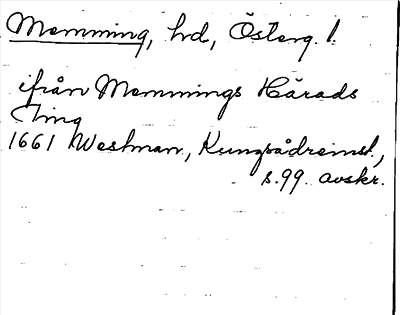 Memming, hd, Österg. l.
ifrån Memmings Härads
Ting
1661 Westman, Kungsådreinst,
s. 99. avskr.